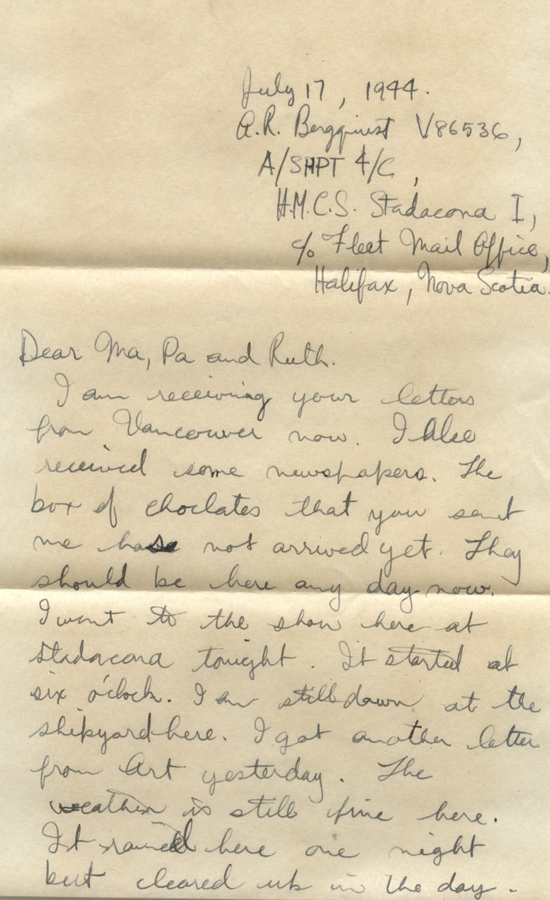 July 17, 1944.
A.R. Bergquist V86536,
A/SHPT 4/C,
H.M.C.S. Stadacona I,
c/o Fleet Mail Office,
Halifax, Nova Scotia.
Dear Ma, Pa and Ruth.
I am receiving your letters
from Vancouver now. I Also
received some newspapers. The
box of choclates that you sent
me has not arrived yet. They
should be here any day now.
I went to the show here at
Stadacona tonight. It started at
six o'clock. I am still down at the
shipyard here. I got another letter
from Art yesterday. The
weather is still fine here.
It rained here one night
but cleared up in the day.